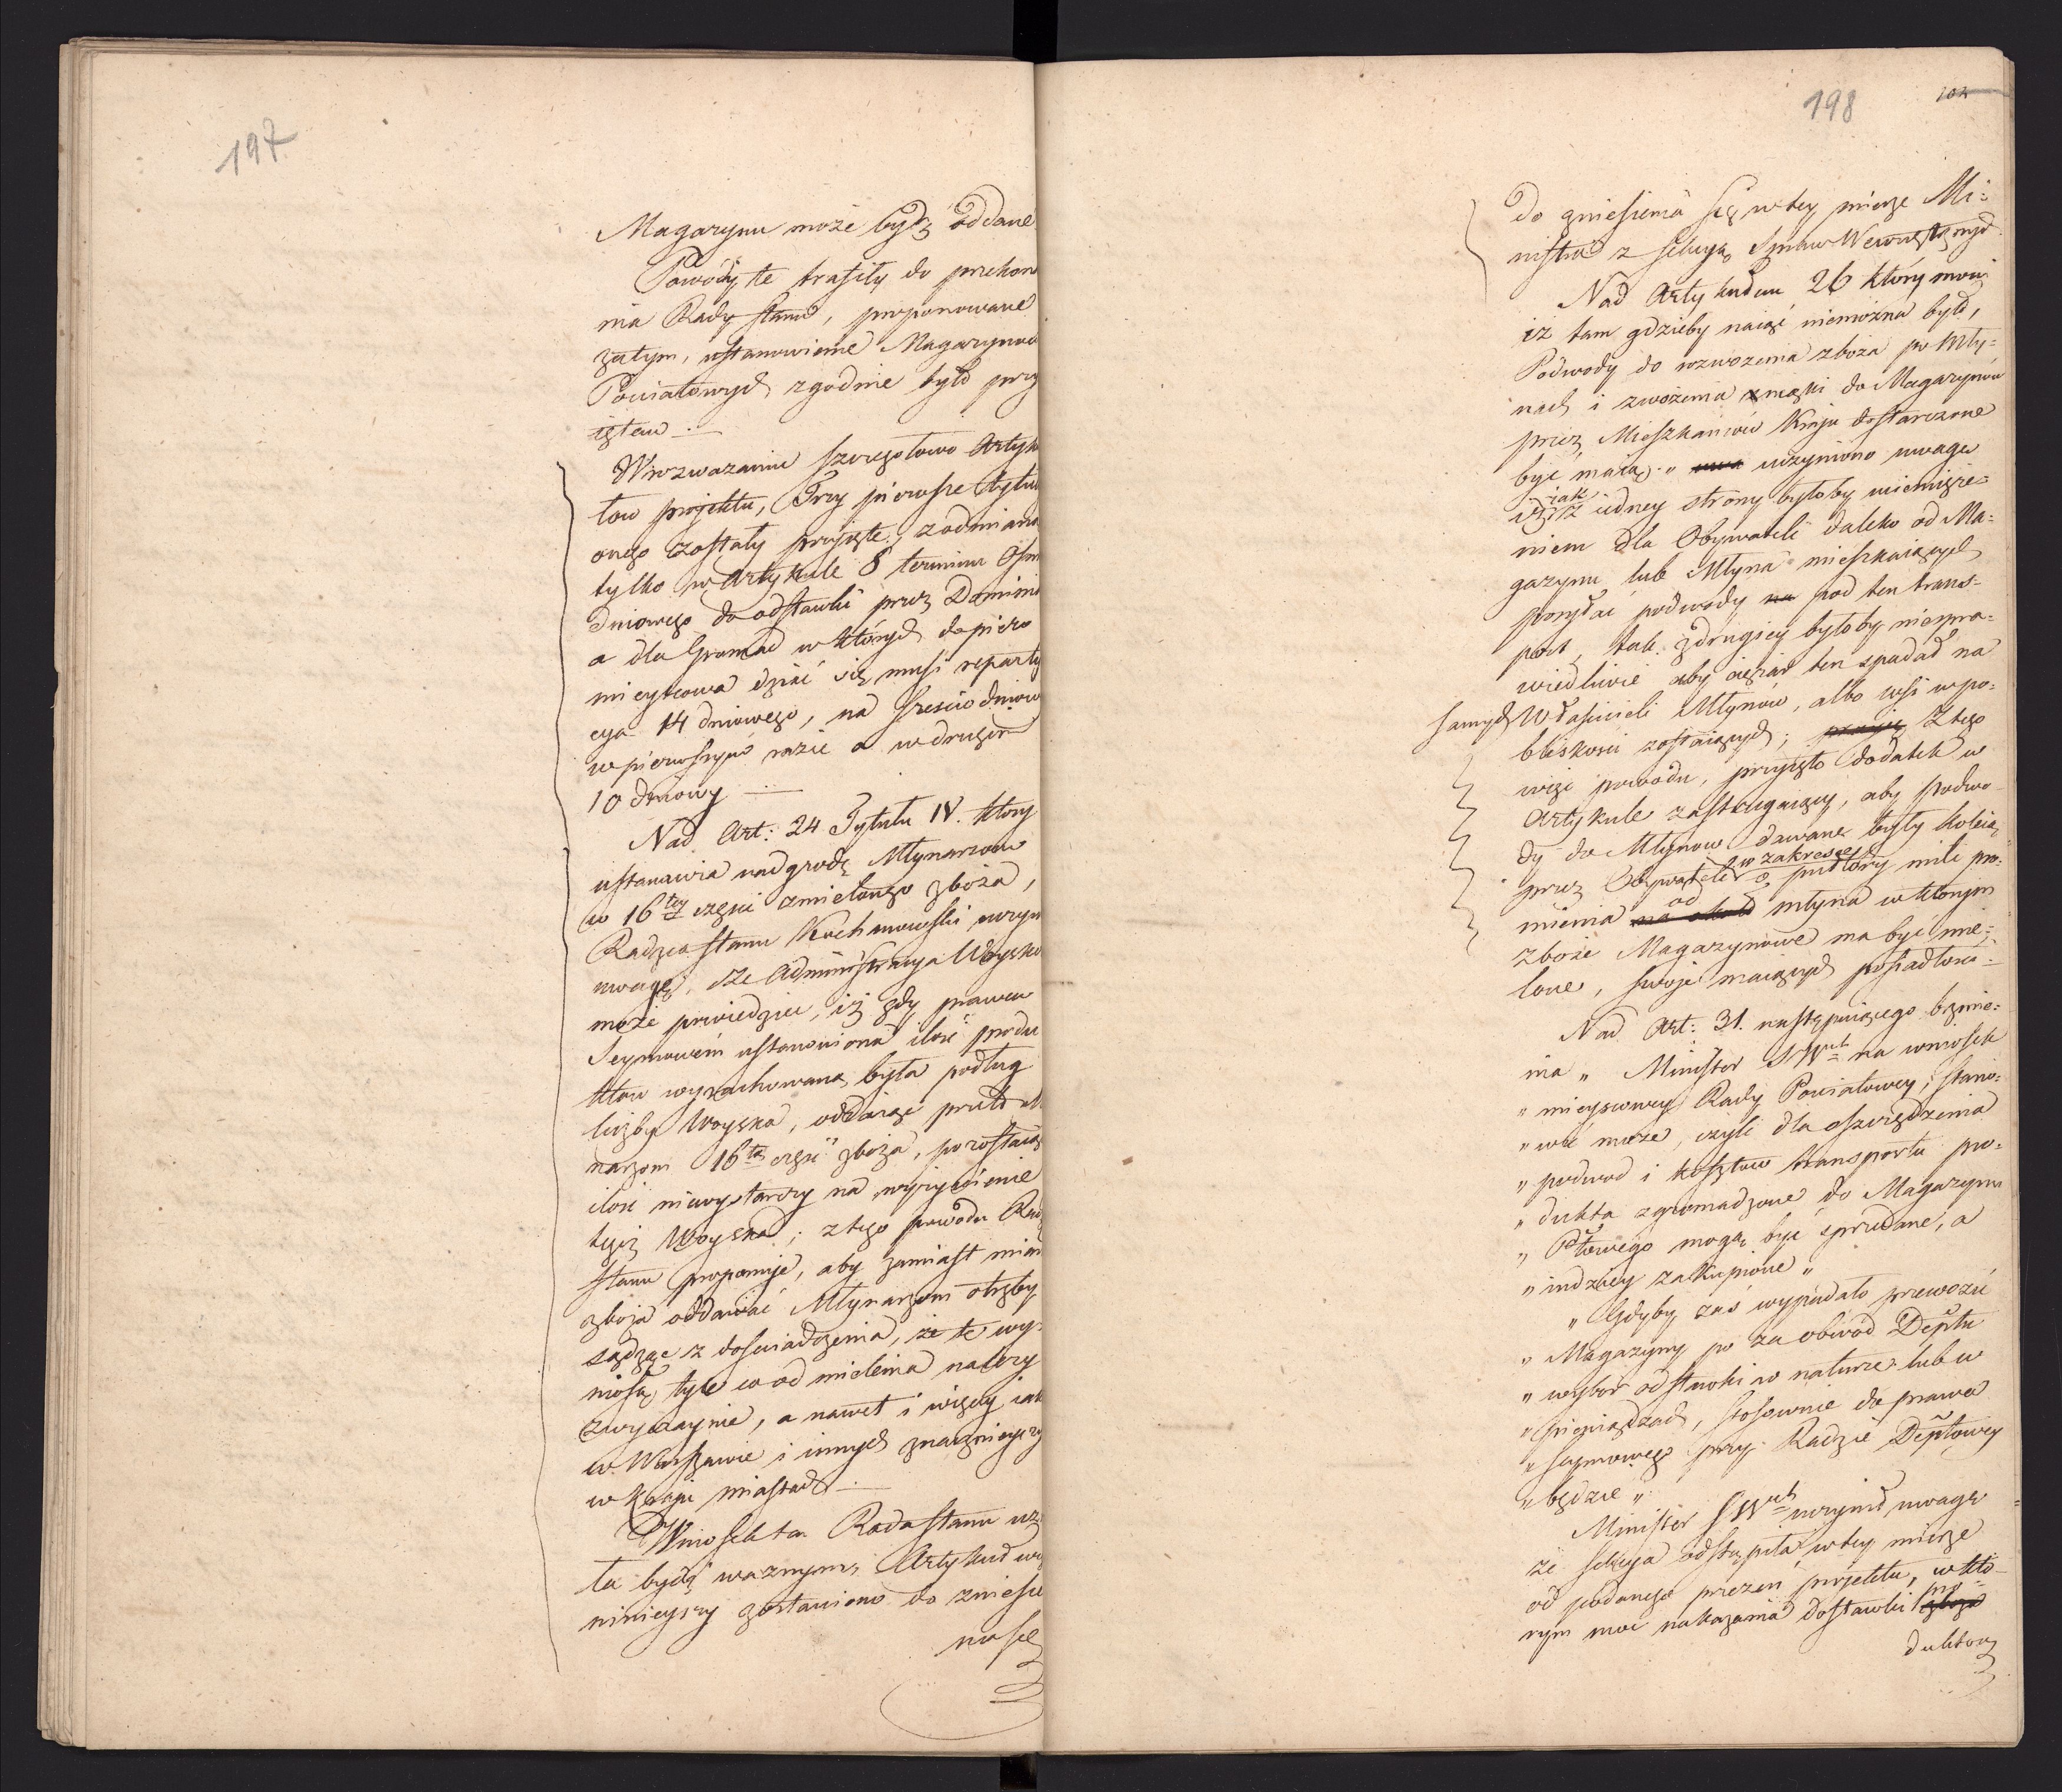 197
Magazynu może bydź oddane
Powody te trafiły do przekon
nia Rady Stanu, proponowane
zatym, ustanowienie Magazynów
Powiatowych zgodnie było przy
ięten
W rozważaniu szczegołowo Artyku
łow projektu, Trzy pierwsze tytuł
onego zostały przyięte, z odmianą
tylko w Artykule 8 terminu Ośm
dniowego do odstawki przez Domini
a dla Gromad w których dopiero
mieyscowa dziać się musi reparty
cya 14 dniowego, na sześcio dniowy
w pierwszym razie a w drugim
10 dniowy
Nad Art: 24 Tytułu IV. który
ustanawia nadgrodę Młynarzom
w 16tey części zmielonego zboża,
Radzca Stanu Kochanowski uczyn
uwagę, że Administracya Woysko
może powiedzieć, iż gdy prawem
Seymowem ustanowiona ilość produ
któw wyrachowana była podług
liczby Woyska, oddaiąc przeto Mł
narzom 16tą część zboża, pozostaiąc
ilość niewystarczy na wyżywienie
tegoż Woyska; z tego powodu Radz
Stanu proponuje, aby zamiast miar
zboża oddawać Młynarzom otręby
sądząc z doświadczenia, że te wy-
noszą tyle co od mielenia należy
zwyczaynie, a nawet i więcey iak
w Warszawie i innych znacznieyszy
w Kraju miastach
Wniosek ten Rada Stanu uz
ła bydź ważnym, Artykuł więc
ninieyszy zostawiono do zniesie
nia się
198
do zniesienia się w tey mierze Mi-
nistra z Sekcyą Spraw Wewnętrznych
Nad Artykułem 26 który mówi
iż tam gdzieby naiąć niemożna było,
Podwody do rozwożenia zboża po Mły-
nach i zwożenia mąki do Magazynów
przez Mieszkańców Kraju dostarczone
być maią „ uczyniono uwagę
iż iak z iedney strony byłoby uciemięże-
niem dla Obywateli daleko od Ma-
gazynu lub Młyna mieszkaiących
posyłać podwody pod ten trans-
port, tak z drugiey byłoby niespra-
wiedliwie aby ciężar ten spadał na
samych Właścicieli Młynów, albo wsi w po-
bliskości zostaiących; z tego
więc powodu, przyięto dodatek w
Artykule zastrzegaiący, aby podwo-
dy do Młynow dawane były koleią
w zakresie
przez Obywateli o pułtory mili pro-
od
mienia na około młyna w którym
zboże Magazynowe ma być mie-
lone, swoje maiących posiadłości
Nad Art: 31. następuiącego brzmie-
nia „ Minister SWch na wniosek
„ mieyscowey Rady Powiatowey, stano-
„ wić może, czyli dla oszczędzenia
„ podwod i kosztow transportu pro-
„ dukta zgromadzone do Magazynu
„ Ptowego mogą być sprzedane, a
„ indziey zakupione „
„ Gdyby zaś wypadało przewozić
„ Magazyny po za obwód Deptu
„ wybór odstawki w naturze lub w
„ pieniądzach, stosownie do prawa
„ seymowego przy Radzie Deptowey
„ będzie „
Minister SWch uczynił uwagę
że Sekcya odstąpiła w tey mierze
od podanego przezeń projektu, w któ-
rym moc nakazania dostawki pro-
duktow